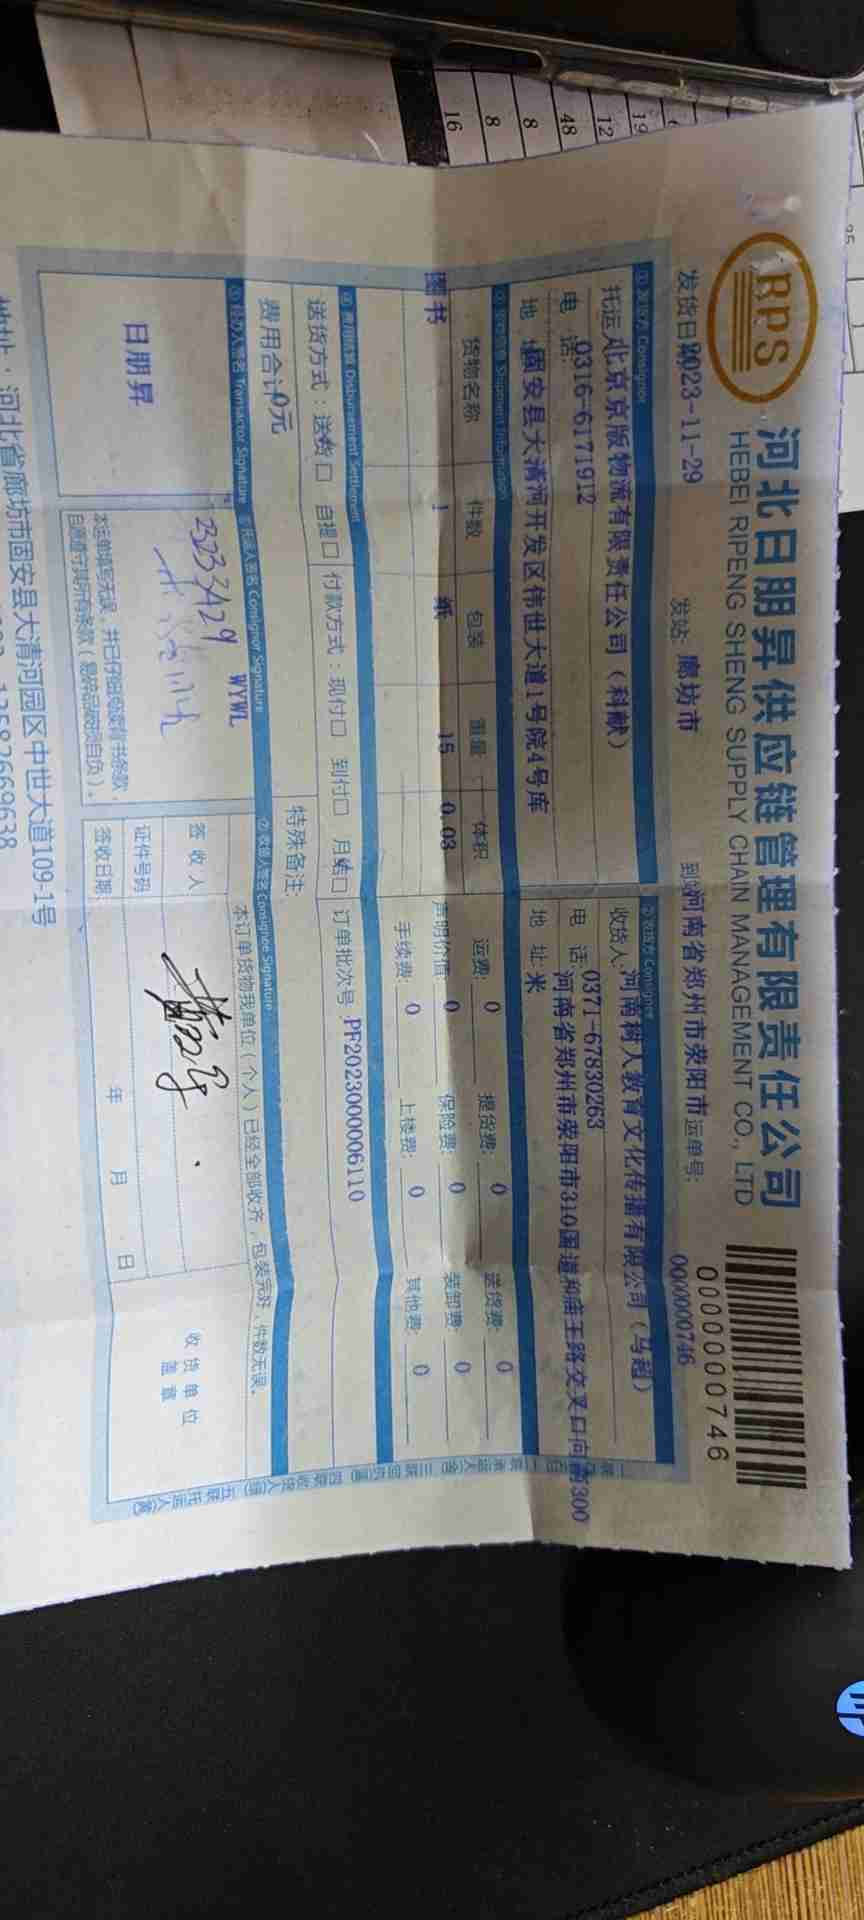 RPS
河北日朋昇供应链管理有限责任公司
HEBEI RIPENG SHENG SUPPLY CHAIN MANAGEMENT CO., LTD
0000000746
发货日期2023-11-29 发站: 廊坊市 到站:河南省郑州市荥阳市 运单号: 0000000746
①发货方 Consignor ②收货方 Consignee
托运人北京京版物流有限责任公司（科献） 收货人:河南树人教育文化传播有限公司（马超）
电 话:0316-6171912 电 话:0371-67830263
地 址固安县大清河开发区伟世大道1号院4号库 地 址:河南省郑州市荥阳市310国道和庙王路交叉口向南300米
Shipment Information
货物名称 件数 包装 重量 体积 运费: 0 提货费: 0 送货费: 0
图书 1 纸 15 0.03 声明价值: 0 保险费: 0 装卸费: 0
手续费: 0 上楼费: 0 其他费: 0
④费用结算 Disbursement Settlement
送货方式：送货口 自提口 付款方式：现付口 到付口 月结口 订单批次号:PF2023000006110
费用合计0元 特殊备注:
⑤经办人签名 Transactor Signature ⑥托运人签名 Consignor Signature ⑦收货人签名 Consignee Signature
日朋昇
WYWL
本订单货物我单位（个人）已经全部收齐，包装完好，件数无误。
签 收 人
证件号码
签收日期: 年 月 日
收货单位
盖章
自愿遵守其所有条款（易碎品破损自负）。
地址：河北省廊坊市固安县大清河园区中世大道109-1号